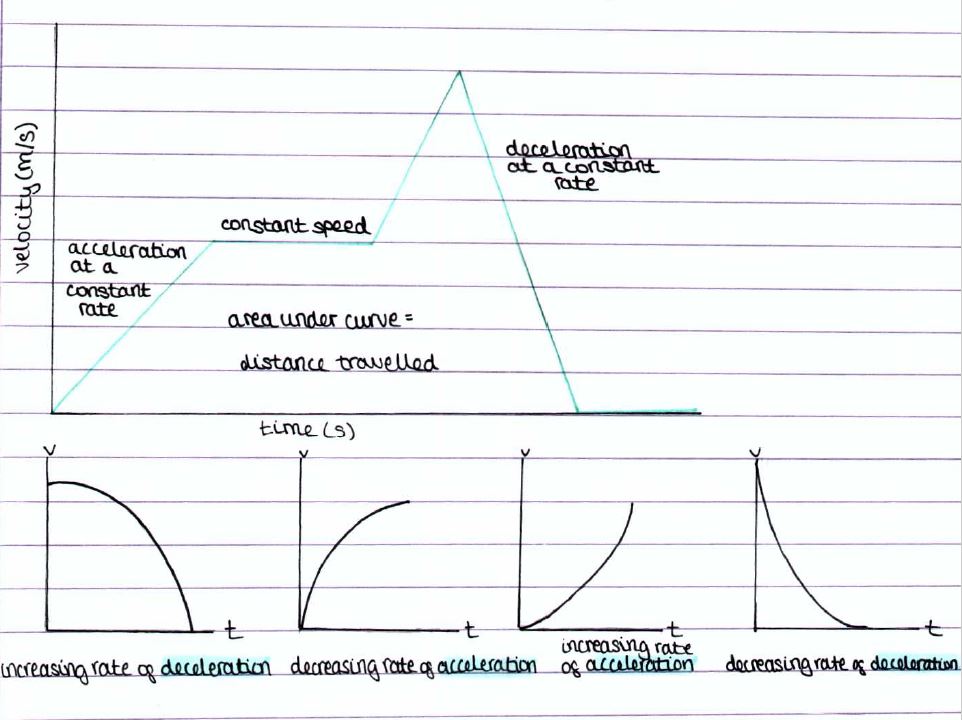 velocity (m/s)
acceleration
at a
constant
rate
constant speed
deceleration
at a constant
rate
area under curve =
distance travelled
time (s)
v
t
increasing rate of deceleration
v
t
decreasing rate of acceleration
v
t
increasing rate
of acceleration
v
t
decreasing rate of deceleration